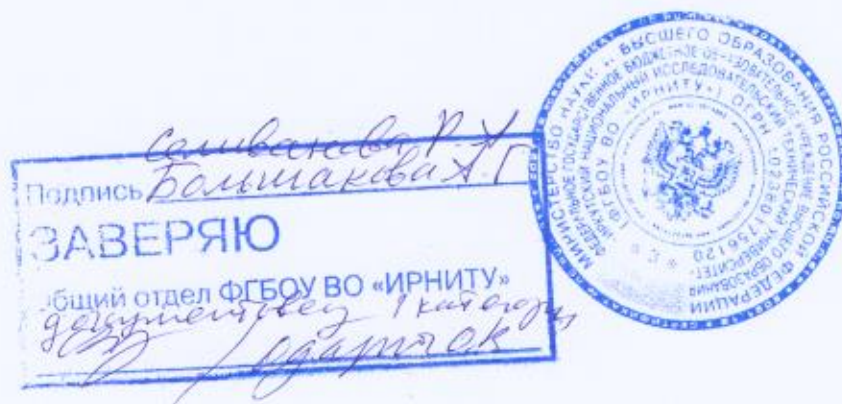 Селиванова Р.А
Подпись Большакова А.Г
ЗАВЕРЯЮ
Общий отдел ФГБОУ ВО «ИРНИТУ»
документовед 1 категории
МИНИСТЕРСТВО НАУКИ И ВЫСШЕГО ОБРАЗОВАНИЯ РОССИЙСКОЙ ФЕДЕРАЦИИ
ФЕДЕРАЛЬНОЕ ГОСУДАРСТВЕННОЕ БЮДЖЕТНОЕ ОБРАЗОВАТЕЛЬНОЕ УЧРЕЖДЕНИЕ ВЫСШЕГО ОБРАЗОВАНИЯ
ИРКУТСКИЙ НАЦИОНАЛЬНЫЙ ИССЛЕДОВАТЕЛЬСКИЙ ТЕХНИЧЕСКИЙ УНИВЕРСИТЕТ
(ФГБОУ ВО «ИРНИТУ») ОГРН 1023801756120